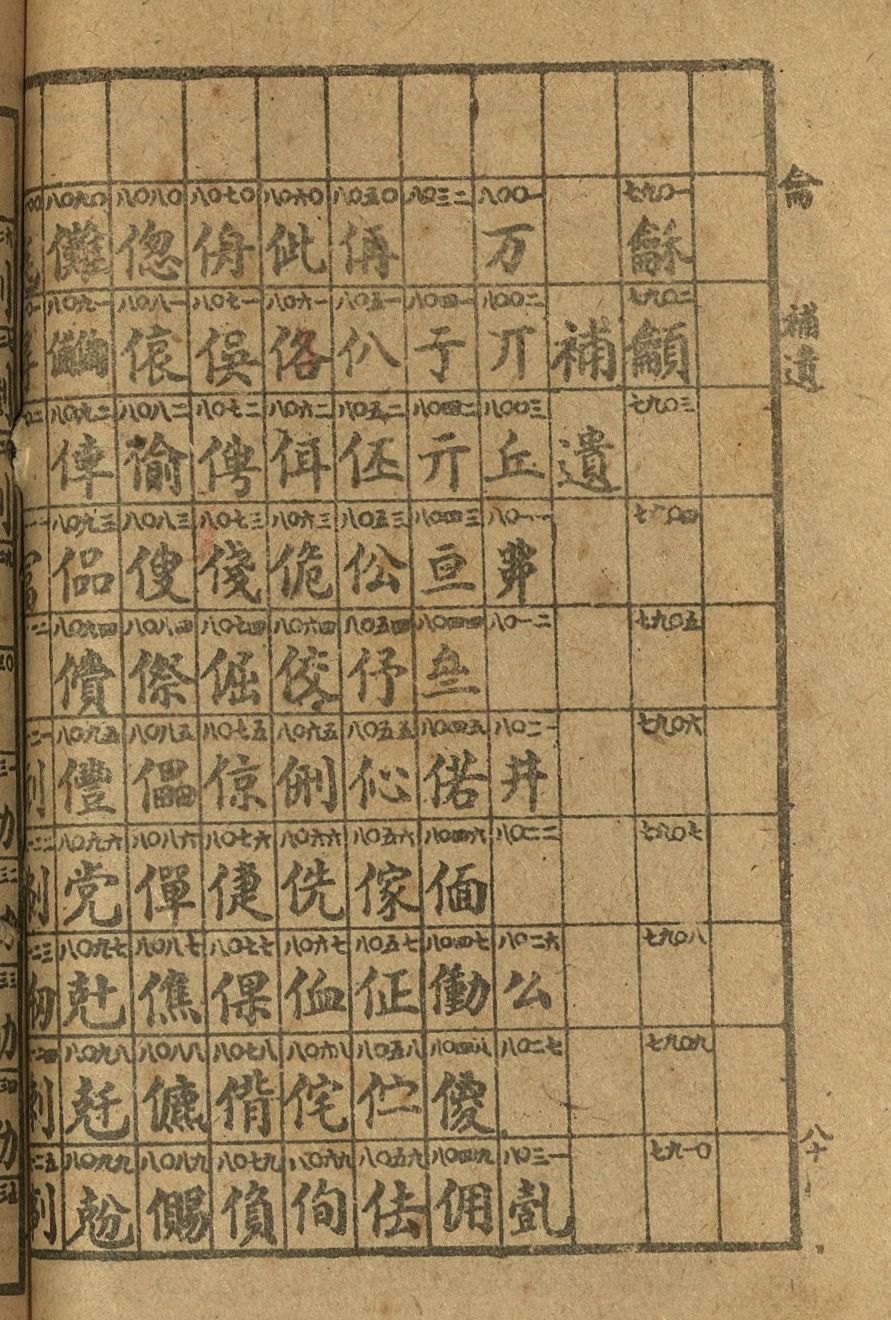 龠 補遺 八十一
七九〇一 龢 七九〇二 龥 七九〇三 七九〇四 七九〇五 七九〇六 七九〇七 七九〇八 七九〇九 七九一〇
補遺
八〇〇一 万 八〇〇二 丌 八〇〇三 丘 八〇一一 八〇一二 八〇二一 丼 八〇二二 八〇二六 八〇二七 八〇三一
八〇三二 八〇四一 于 八〇四二 亓 八〇四三 亘 八〇四四 亝 八〇四五 偌 八〇四六 偭 八〇四七 働 八〇四八 八〇四九 佣
八〇五〇 偁 八〇五一 仈 八〇五二 伾 八〇五三 伀 八〇五四 伃 八〇五五 伈 八〇五六 傢 八〇五七 佂 八〇五八 伫 八〇五九 佉
八〇六〇 佌 八〇六一 佫 八〇六二 佴 八〇六三 佹 八〇六四 佼 八〇六五 侀 八〇六六 侁 八〇六七 侐 八〇六八 侘 八〇六九 侚
八〇七〇 侜 八〇七一 俁 八〇七二 俜 八〇七三 俴 八〇七四 倔 八〇七五 倞 八〇七六 倢 八〇七七 倮 八〇七八 偕 八〇七九 偩
八〇八〇 偬 八〇八一 偯 八〇八二 八〇八三 傁 八〇八四 傺 八〇八五 儡 八〇八六 僤 八〇八七 僬 八〇八八 儦 八〇八九 儩
八〇九〇 儺 八〇九一 八〇九二 俥 八〇九三 偘 八〇九四 儥 八〇九五 僼 八〇九六 党 八〇九七 兙 八〇九八 兛 八〇九九 兝